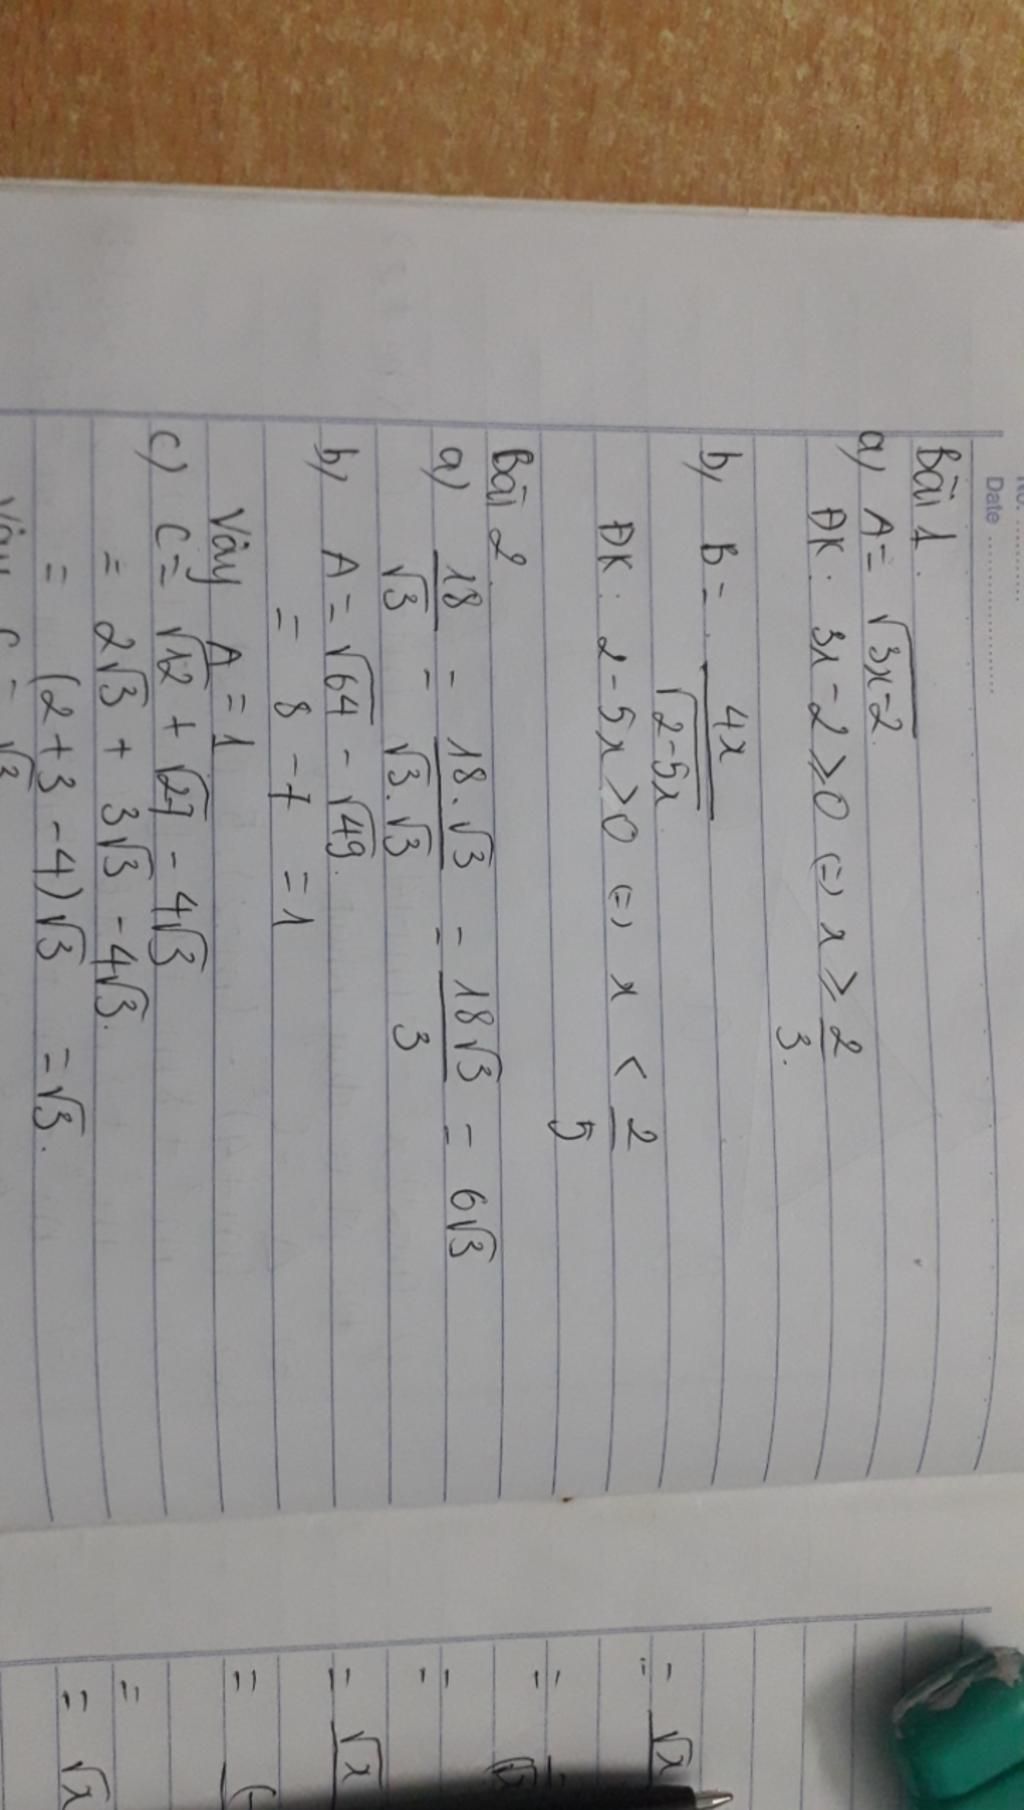 No. ............
Date ......................
Bài 1.
a) A = √3x-2.
ĐK: 3x-2 ≥ 0 (=) x ≥ 2/3.
b) B = 4x/√2-5x
ĐK: 2-5x > 0 (=) x < 2/5
Bài 2.
a) 18/√3 = 18.√3/√3.√3 = 18√3/3 = 6√3
b) A = √64 - √49.
= 8 - 7 = 1
Vậy A = 1
c) C = √12 + √27 - 4√3
= 2√3 + 3√3 - 4√3.
= (2+3-4)√3 = √3.
Vậy C = √3
= √x
=
=
=
= √x
=
=
= √x